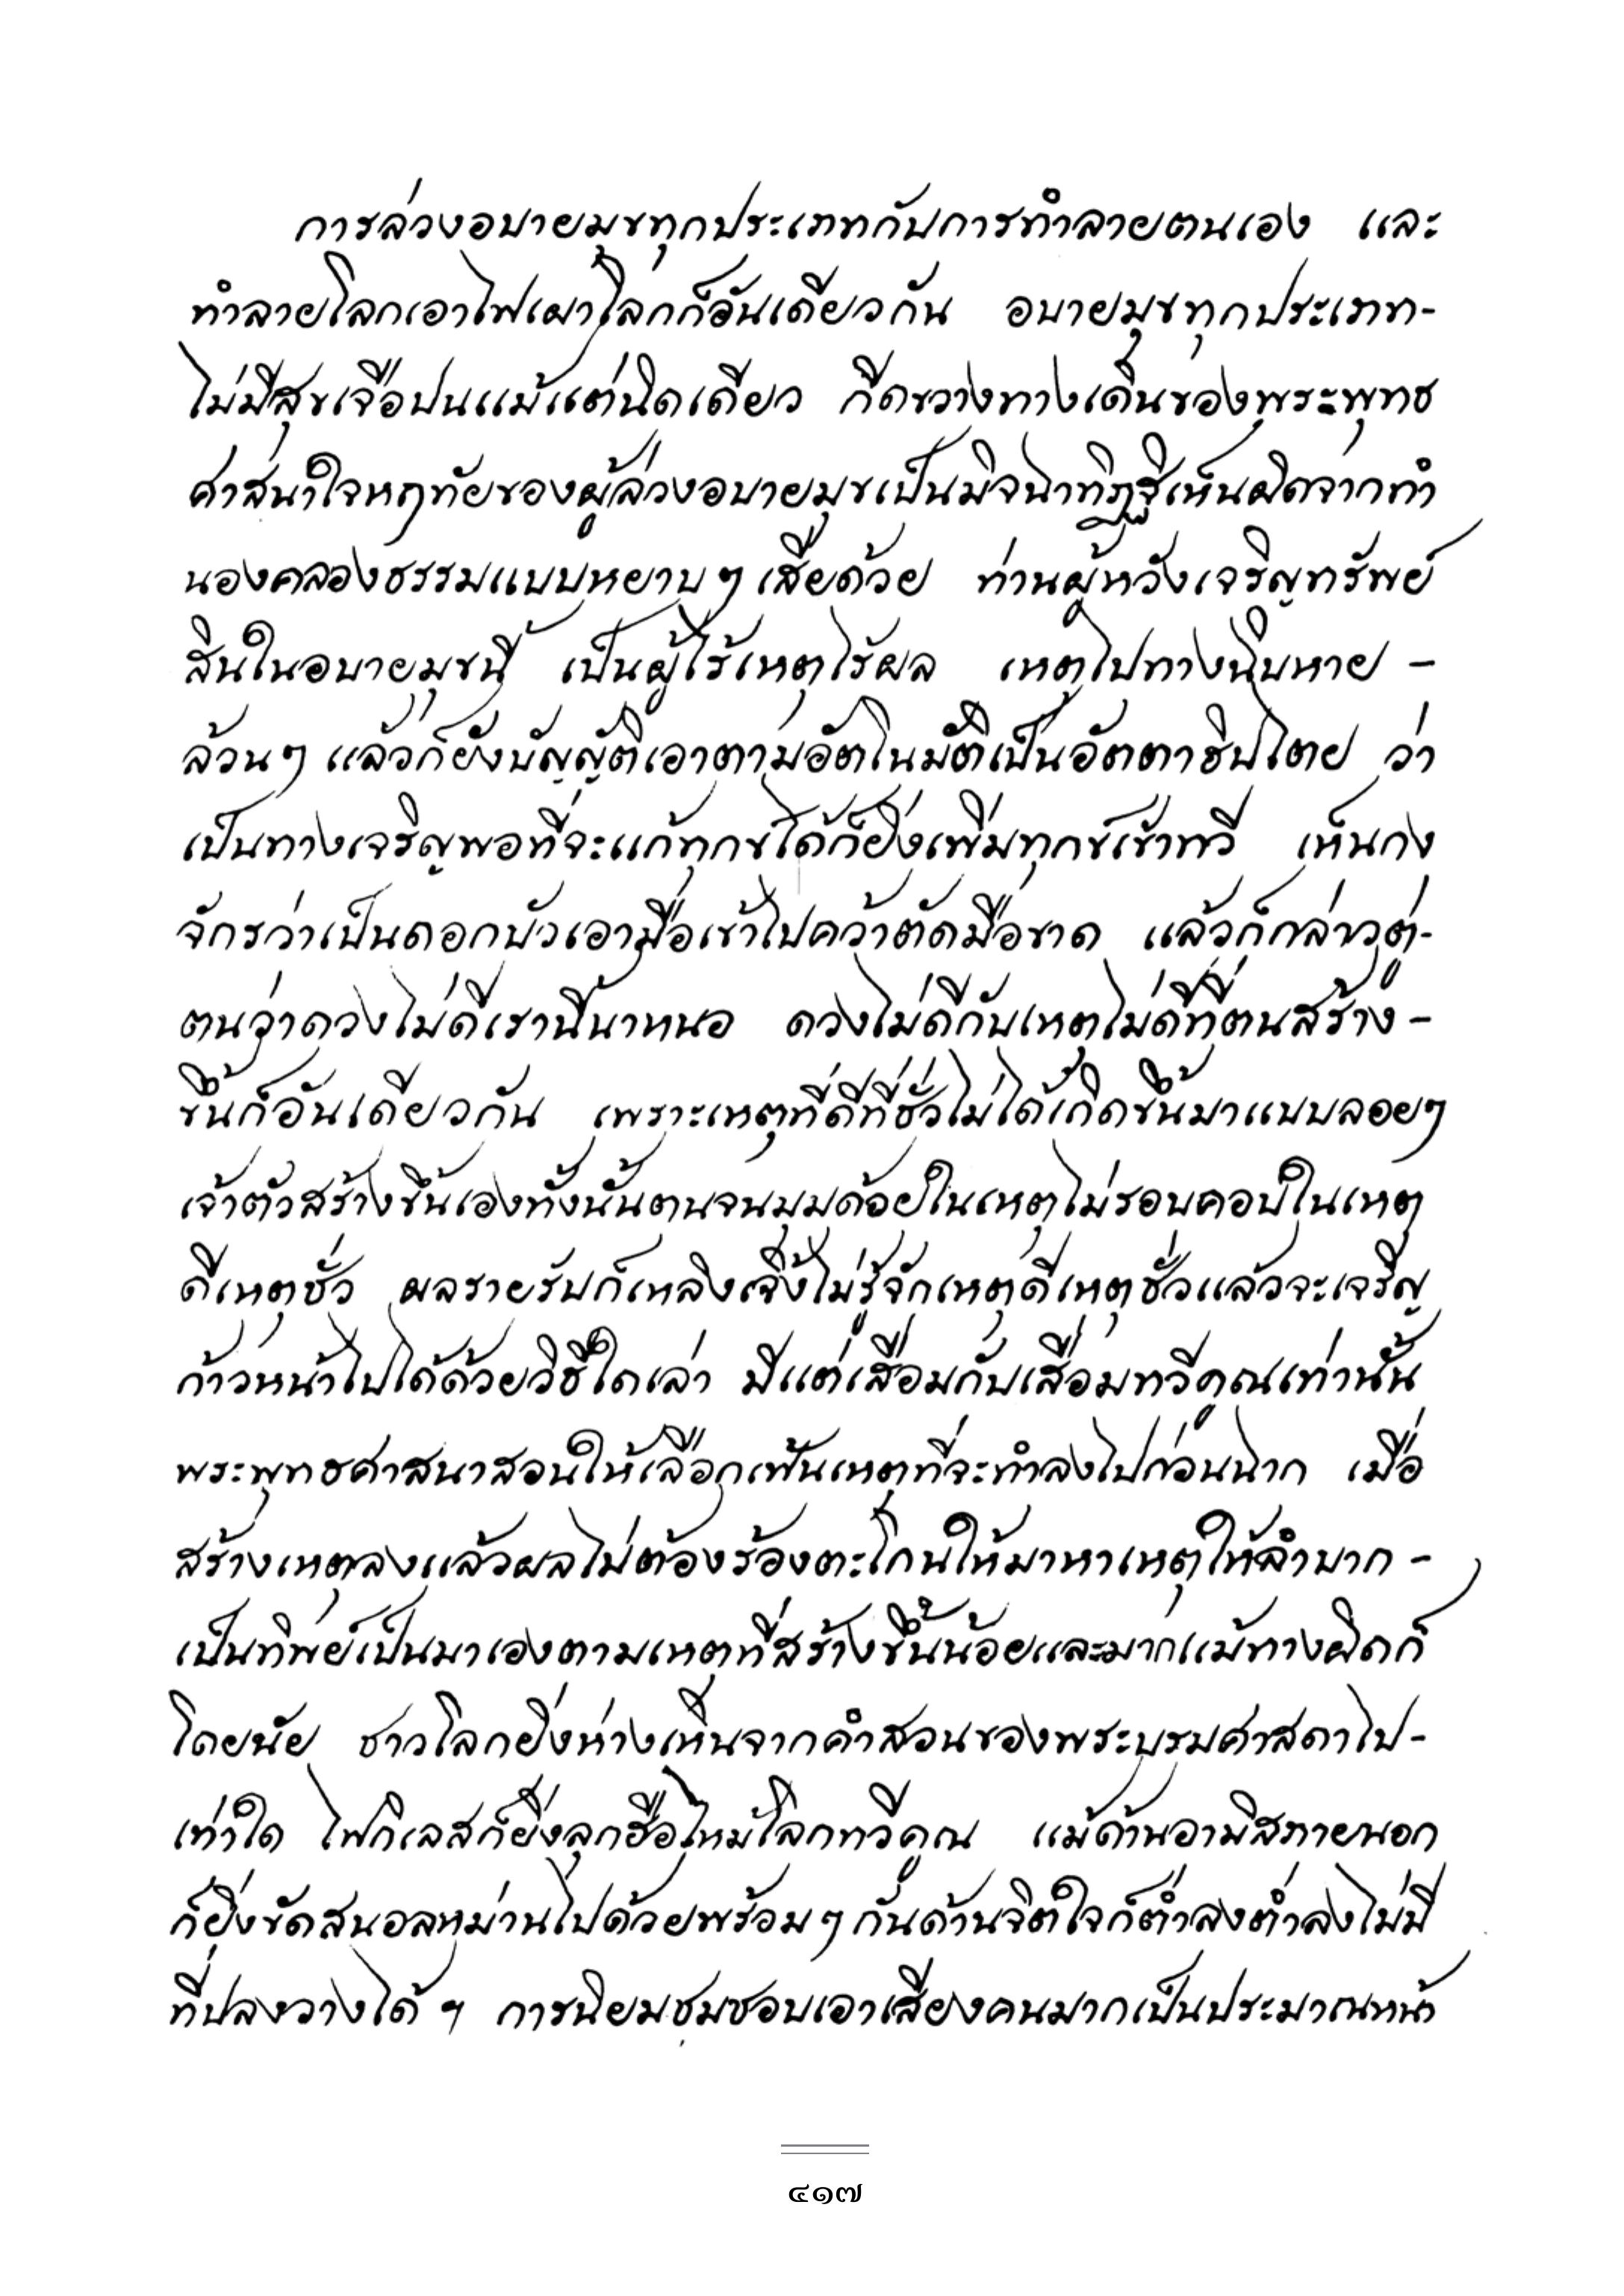 การล่วงอบายมุขทุกประเภทกับการทำลายตนเอง และ
ทำลายโลกเอาไฟเผาโลกก็อันเดียวกัน อบายมุขทุกประเภท-
ไม่มีสุขเจือปนแม้แต่นิดเดียว กีดขวางทางเดินของพระพุทธ
ศาสนาใจหฤทัยของผู้ล่วงอบายมุขเป็นมิจฉาทิฏฐิเห็นผิดจากทำ
นองคลองธรรมแบบหยาบๆ เสียด้วย ท่านผู้หวังเจริญทรัพย์
สินในอบายมุขนี้ เป็นผู้ไร้เหตุไร้ผล เหตุไปทางฉิบหาย -
ล้วนๆ แล้วก็ยังบัญญัติเอาตามอัตโนมัติเป็นอัตตาธิปไตย ว่า
เป็นทางเจริญพอที่จะแก้ทุกข์ได้ก็ยิ่งเพิ่มทุกข์เข้าทวี เห็นกง
จักรว่าเป็นดอกบัวเอามือเข้าไปคว้าตัดมือขาด แล้วก็กล่าวตู่-
ตนว่าดวงไม่ดีเรานี้นาหนอ ดวงไม่ดีกับเหตุไม่ดีที่ตนสร้าง -
ขึ้นก็อันเดียวกัน เพราะเหตุที่ดีที่ชั่วไม่ได้เกิดขึ้นมาแบบลอยๆ
เจ้าตัวสร้างขึ้นเองทั้งนั้นตนจนมุมด้อยในเหตุไม่รอบคอบในเหตุ
ดีเหตุชั่ว ผลรายรับก็เหลิงเจิ้งไม่รู้จักเหตุดีเหตุชั่วแล้วจะเจริญ
ก้าวหน้าไปได้ด้วยวิธีใดเล่า มีแต่เสื่อมกับเสื่อมทวีคูณเท่านั้น
พระพุทธศาสนาสอนให้เลือกเฟ้นเหตุที่จะทำลงไปก่อนนาก เมื่อ
สร้างเหตุลงแล้วผลไม่ต้องร้องตะโกนให้มาหาเหตุให้ลำบาก -
เป็นทิพย์เป็นมาเองตามเหตุที่สร้างขึ้นน้อยและมากแม้ทางผิดก็
โดยนัย ชาวโลกยิ่งห่างเหินจากคำสอนของพระบรมศาสดาไป-
เท่าใด ไฟกิเลสก็ยิ่งลุกฮือไหม้โลกทวีคูณ แม้ด้านอามิสภายนอก
ก็ยิ่งขัดสนอลหม่านไปด้วยพร้อมๆ กันด้านจิตใจก็ต่ำลงต่ำลงไม่มี
ที่ปลงวางได้ ฯ การนิยมชมชอบเอาเสียงคนมากเป็นประมาณหน้า
๔๑๗